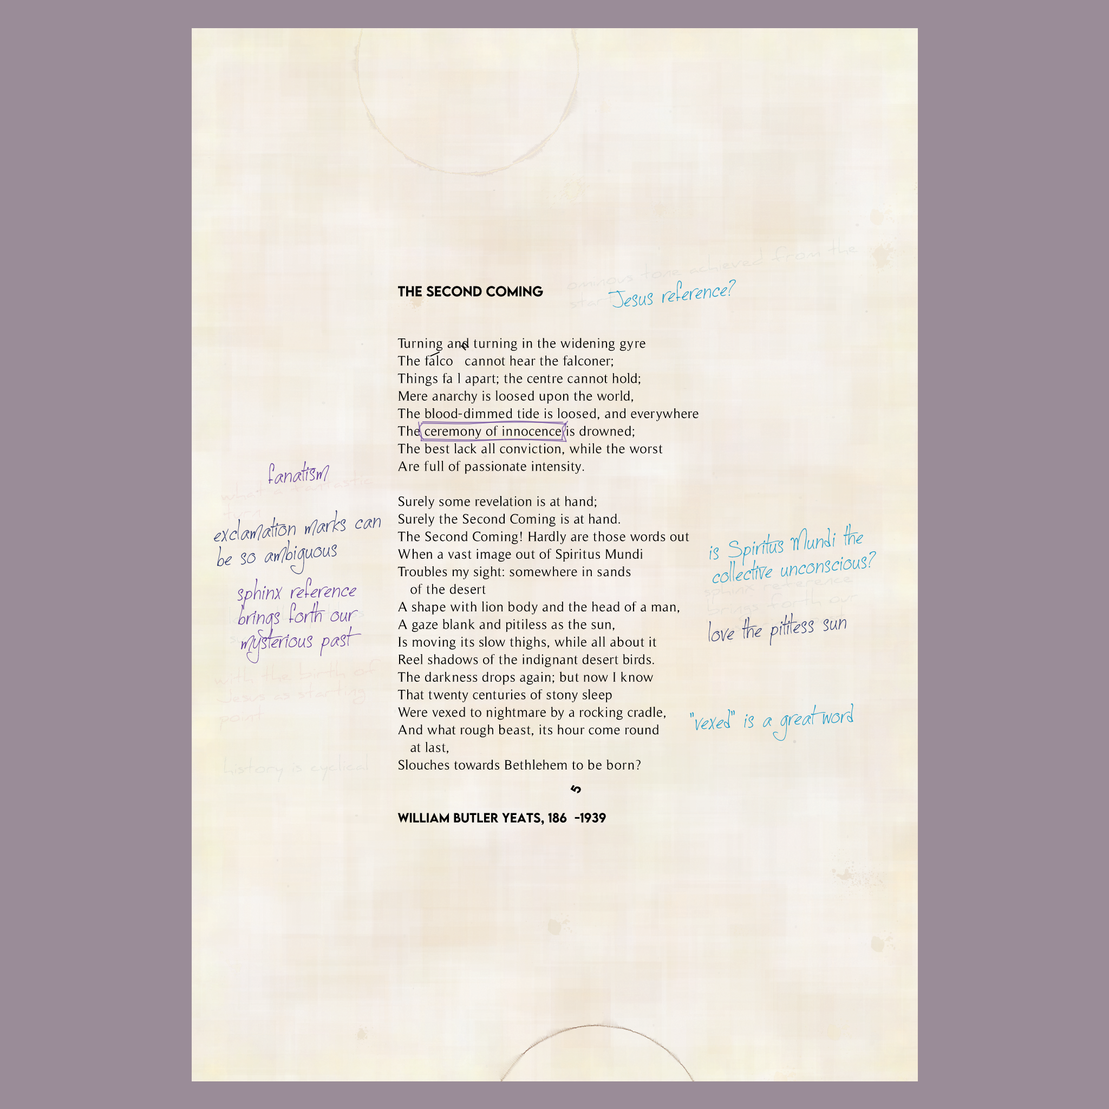 THE SECOND COMING
Jesus reference?
Turning and turning in the widening gyre
The falco n cannot hear the falconer;
Things fa l apart; the centre cannot hold;
Mere anarchy is loosed upon the world,
The blood-dimmed tide is loosed, and everywhere
The ceremony of innocence is drowned;
The best lack all conviction, while the worst
Are full of passionate intensity.
fanatism
Surely some revelation is at hand;
Surely the Second Coming is at hand.
The Second Coming! Hardly are those words out
When a vast image out of Spiritus Mundi
Troubles my sight: somewhere in sands
of the desert
A shape with lion body and the head of a man,
A gaze blank and pitiless as the sun,
Is moving its slow thighs, while all about it
Reel shadows of the indignant desert birds.
The darkness drops again; but now I know
That twenty centuries of stony sleep
Were vexed to nightmare by a rocking cradle,
And what rough beast, its hour come round
at last,
Slouches towards Bethlehem to be born?
exclamation marks can
be so ambiguous
sphinx reference
brings forth our
mysterious past
is Spiritus Mundi the
collective unconscious?
love the pitiless sun
"vexed" is a great word
history is cyclical
5
WILLIAM BUTLER YEATS, 186 -1939